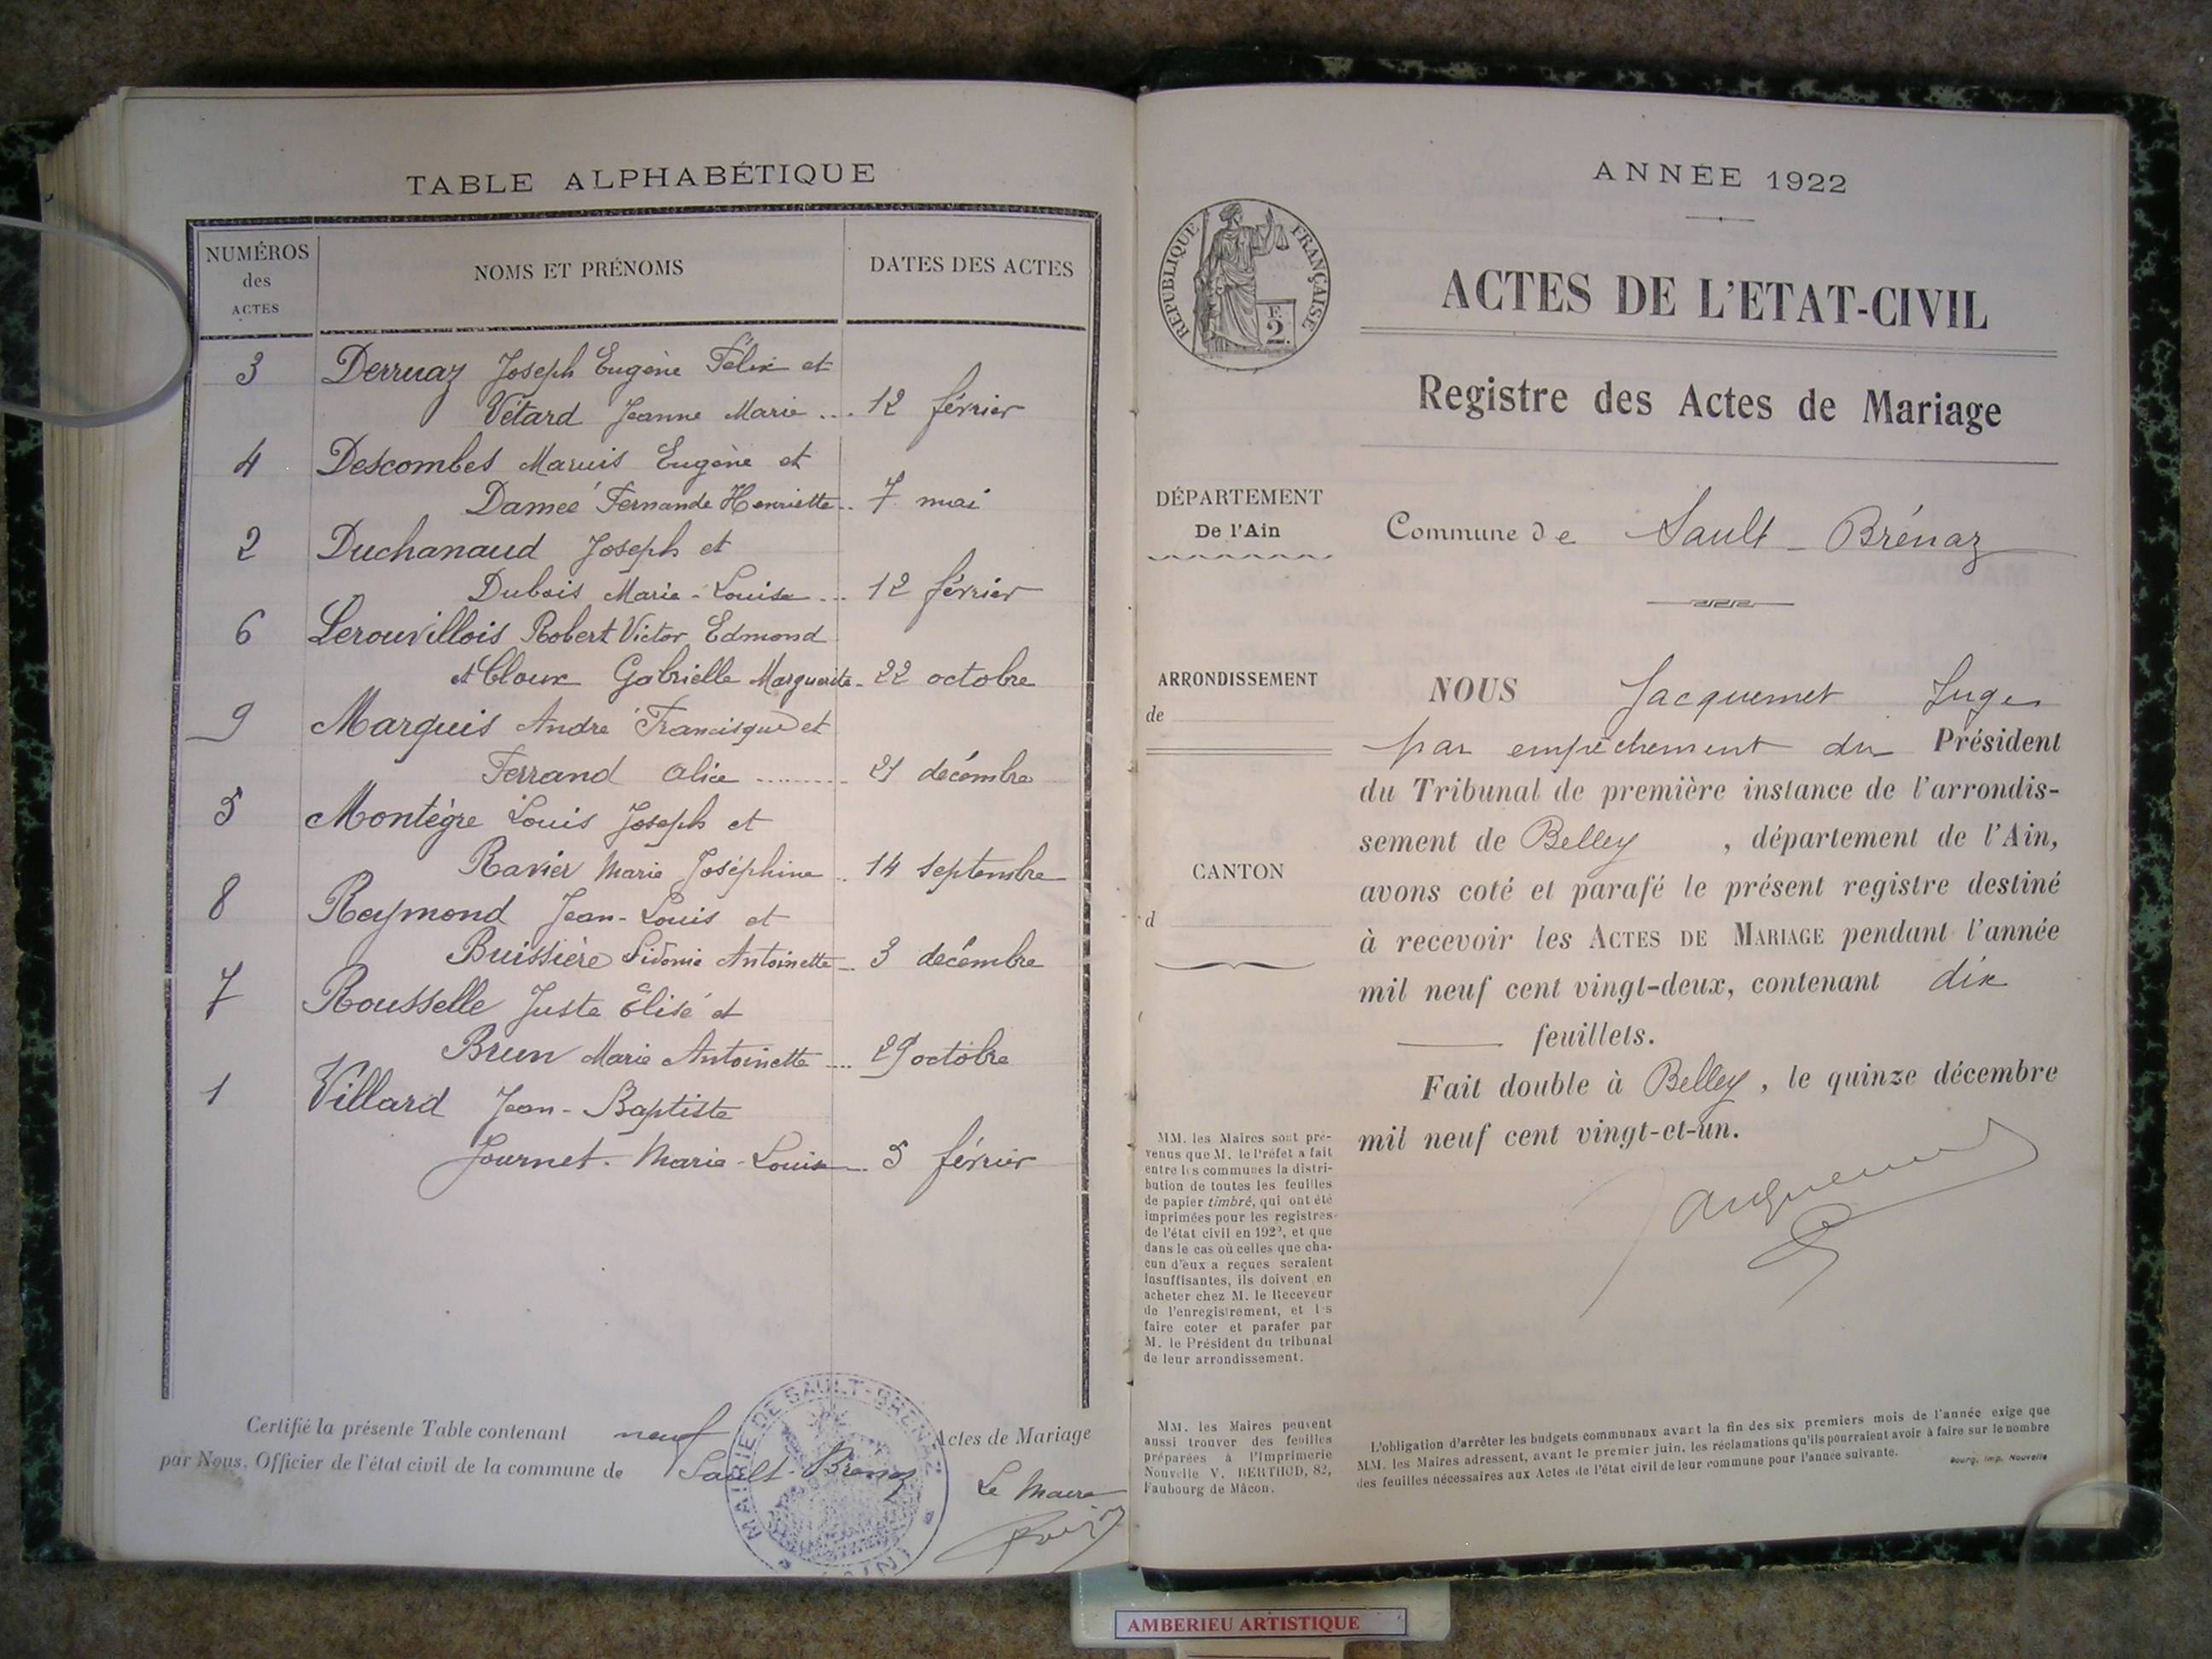 TABLE ALPHABÉTIQUE
NUMÉROS
des
ACTES
NOMS ET PRÉNOMS
DATES DES ACTES
3 Derruaz Joseph Eugène Félix et
Vétard Jeanne Marie ... 12 février
4 Descombes Marius Eugène et
Dameé Fernande Henriette .. 7 mai
2 Duchanaud Joseph et
Dubois Marie-Louise ... 12 février
6 Lerouvillois Robert Victor Edmond
et Cloux Gabrielle Marguerite - 22 octobre
9 Marquis André Francisque et
Ferrand Alice ......... 21 décembre
5 Montègre Louis Joseph et
Ravier Marie Joséphine .. 14 septembre
8 Reymond Jean-Louis et
Buissière Sidonie Antoinette ... 3 décembre
7 Rousselle Juste Élisé et
Brun Marie Antoinette .... 29 octobre
1 Villard Jean-Baptiste
Journet Marie-Louise ... 5 février
Certifié la présente Table contenant neuf Actes de Mariage
par Nous, Officier de l'état civil de la commune de Sault-Brenaz
Le Maire
MAIRIE DE SAULT-BRENAZ
ANNÉE 1922
RÉPUBLIQUE FRANÇAISE
F.
2.
ACTES DE L'ETAT-CIVIL
Registre des Actes de Mariage
DÉPARTEMENT
De l'Ain
Commune de Sault-Brénaz
ARRONDISSEMENT
de
CANTON
d
NOUS Jacquemet Juge
par empêchement du Président
du Tribunal de première instance de l'arrondis-
sement de Belley , département de l'Ain,
avons coté et parafé le présent registre destiné
à recevoir les ACTES DE MARIAGE pendant l'année
mil neuf cent vingt-deux, contenant dix
feuillets.
Fait double à Belley , le quinze décembre
mil neuf cent vingt-et-un.
MM. les Maires sont pré-
venus que M. le Préfet a fait
entre les communes la distri-
bution de toutes les feuilles
de papier timbré, qui ont été
imprimées pour les registres
de l'état civil en 1922, et que
dans le cas où celles que cha-
cun d'eux a reçues seraient
insuffisantes, ils doivent en
acheter chez M. le Receveur
de l'enregistrement, et les
faire coter et parafer par
M. le Président du tribunal
de leur arrondissement.
MM. les Maires peuvent
aussi trouver des feuilles
préparées à l'Imprimerie
Nouvelle V. BERTHOD, 82,
Faubourg de Mâcon.
L'obligation d'arrêter les budgets communaux avant la fin des six premiers mois de l'année exige que
MM. les Maires adressent, avant le premier juin, les réclamations qu'ils pourraient avoir à faire sur le nombre
des feuilles nécessaires aux Actes de l'état civil de leur commune pour l'année suivante.
Bourg, Imp. Nouvelle
AMBERIEU ARTISTIQUE